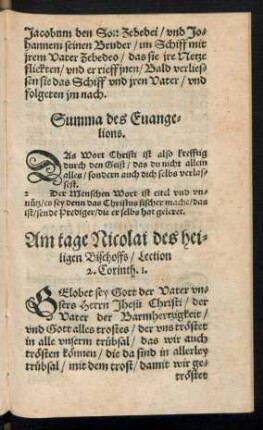 Jacobum den Son Zebedei / vnd Jo-
hannem seinen Bruder / im Schiff mit
jrem Vater Zebedeo / das sie jre Netze
flickten / vnd er rieff jnen / Bald verlies-
sen sie das Schiff vnd jren Vater / vnd
folgeten jm nach.
Summa des Euange-
lions.
DAs Wort Christi ist also krefftig
durch den Geist / das du nicht allein
alles / sondern auch dich selbs verlas-
sest.
2 Der Menschen Wort ist eitel vnd vn-
nütz / es sey denn das Christus fischer mache / das
ist / sende Prediger / die er selbs hat geleret.
Am tage Nicolai des hei-
ligen Bischoffs / Lection
2. Corinth. 1.
GElobet sey Gott der Vater vn-
sers Herrn Jhesu Christi / der
Vater der Barmhertzigkeit /
vnd Gott alles trostes / der vns tröstet
in alle vnserm trübsal / das wir auch
trösten können / die da sind in allerley
trübsal / mit dem trost / damit wir ge-
tröstet